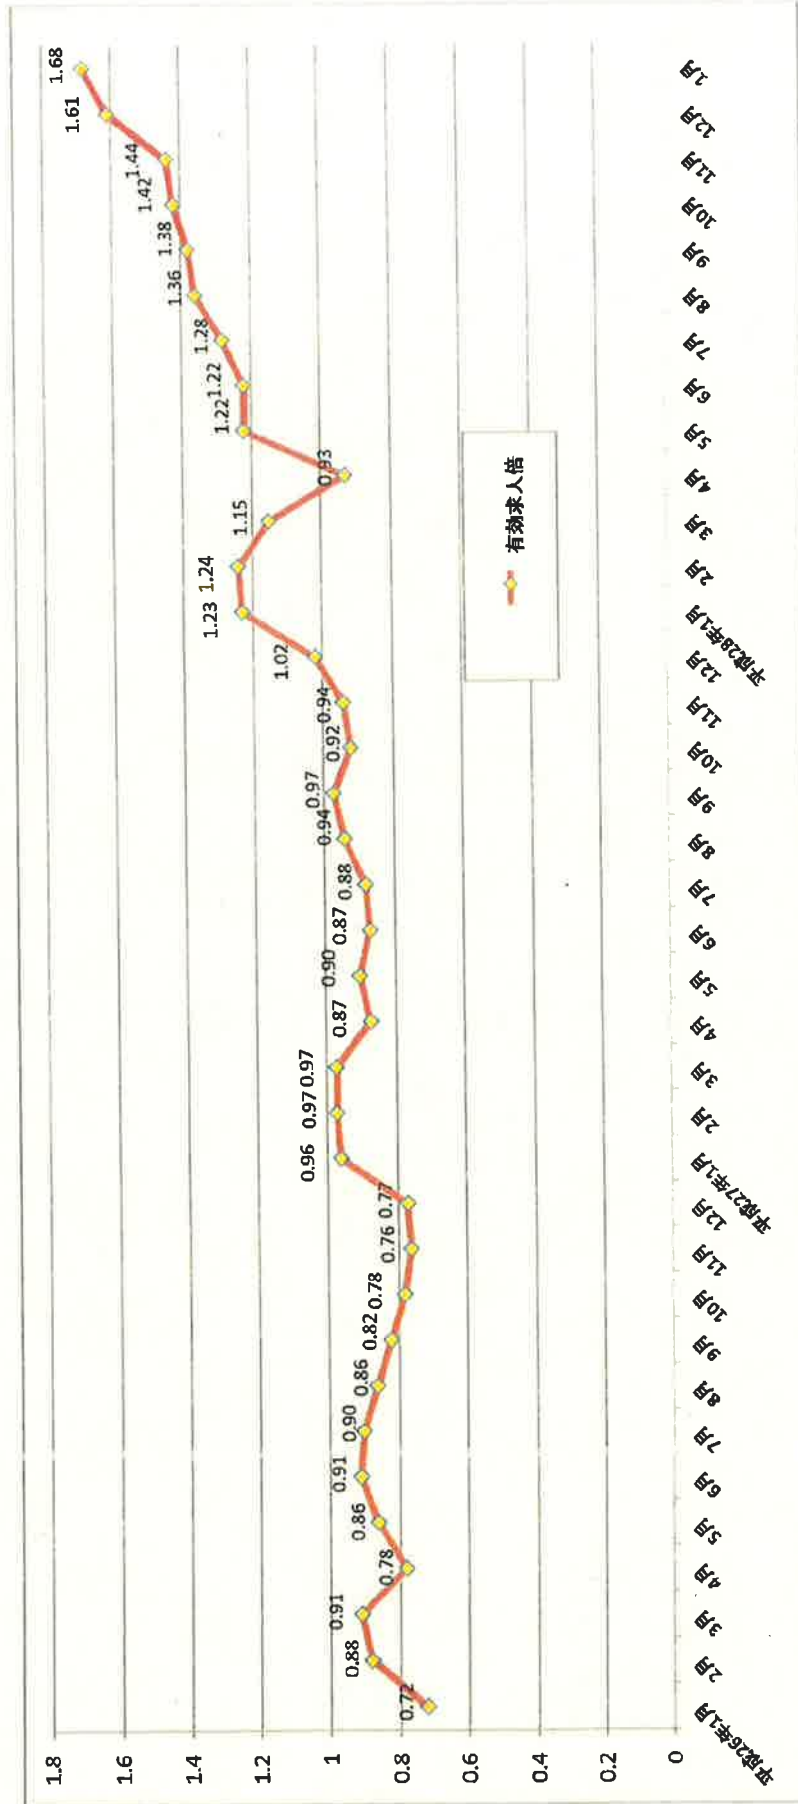 1.8
1.6
1.4
1.2
1
0.8
0.6
0.4
0.2
0
0.72
0.88
0.91
0.78
0.86
0.91
0.90
0.86
0.82
0.78
0.76
0.77
0.96
0.97
0.97
0.87
0.90
0.87
0.88
0.94
0.97
0.92
0.94
1.02
1.23
1.24
1.15
0.93
1.22
1.22
1.28
1.36
1.38
1.42
1.44
1.61
1.68
有効求人倍
平成26年1月
2月
3月
4月
5月
6月
7月
8月
9月
10月
11月
12月
平成27年1月
2月
3月
4月
5月
6月
7月
8月
9月
10月
11月
12月
平成28年1月
2月
3月
4月
5月
6月
7月
8月
9月
10月
11月
12月
1月